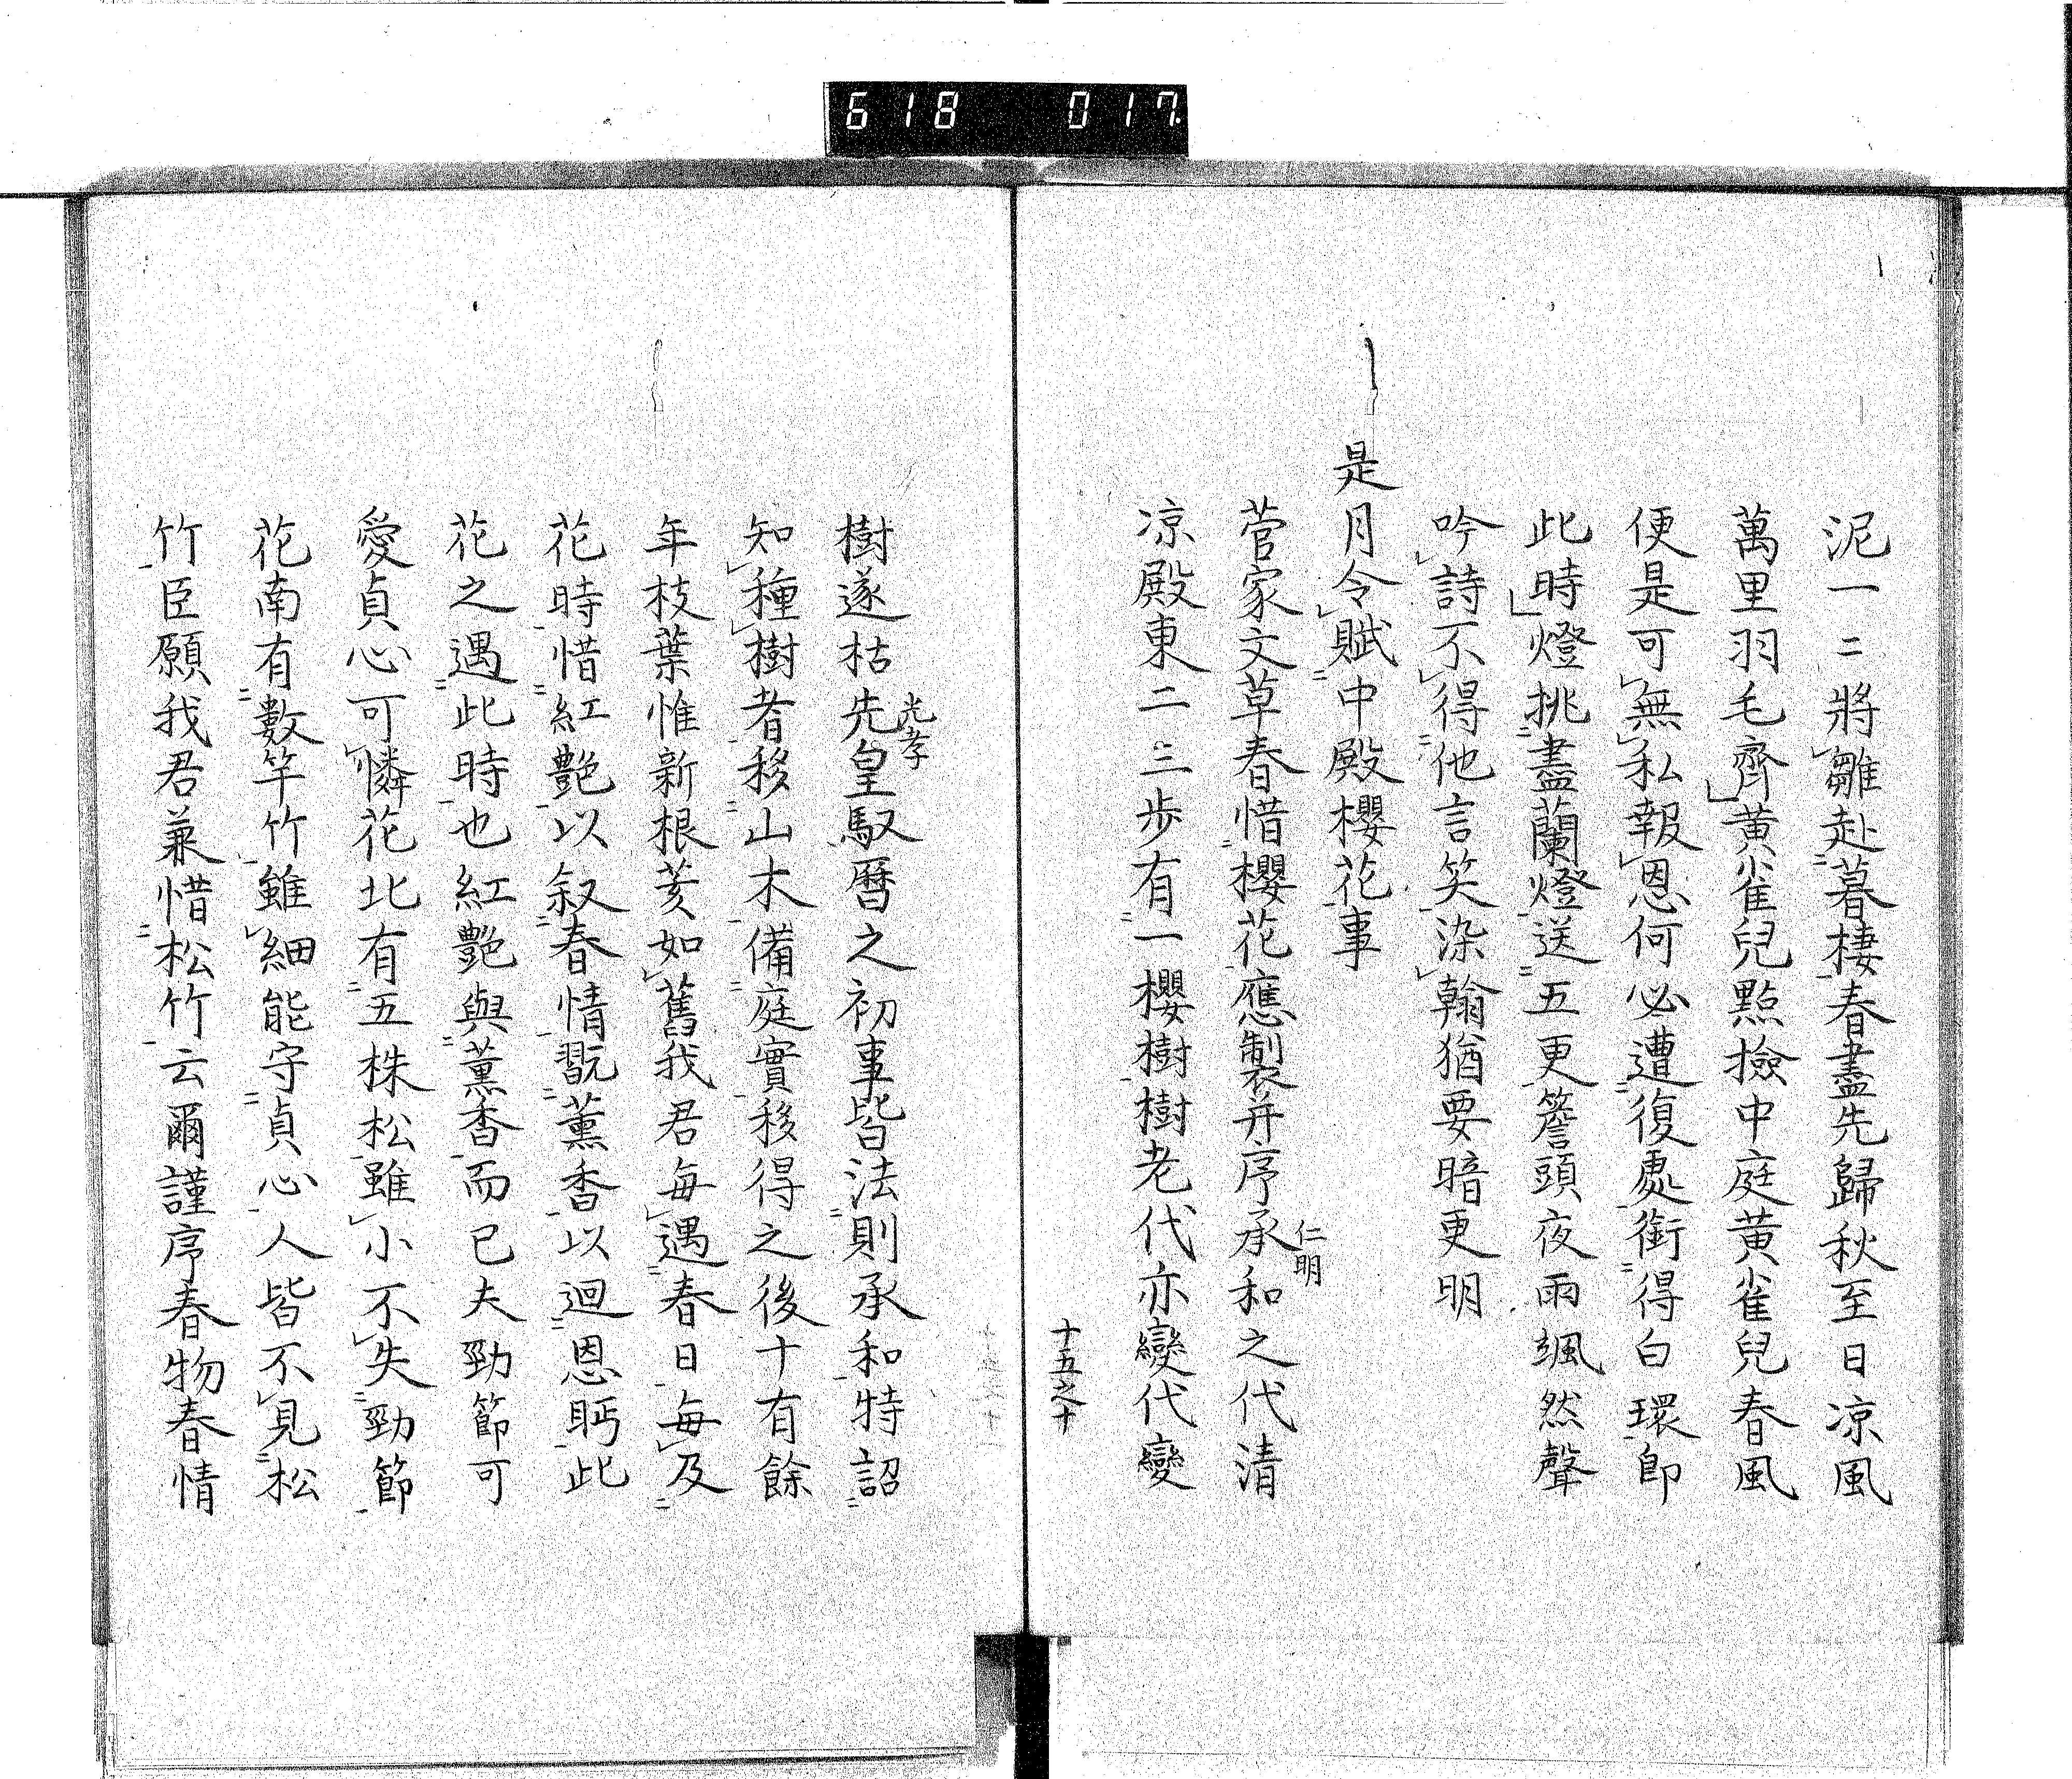 618 017
泥一二將雛赴暮棲春盡先歸秋至日凉風
萬里羽毛齊黄雀兒點撿中庭黄雀兒春風
便是可無私報恩何必遭復處銜得白環即
此時燈挑盡蘭燈送五更簷頭夜雨颯然聲
吟詩不得他言笑染翰猶要暗更明
是月令賦中殿櫻花事
菅家文草春惜櫻花應製并序承和之代清
仁明
凉殿東二三歩有一櫻樹樹老代亦變代變
十五之十
樹遂枯先皇馭暦之初事皆法則承和特詔
光孝
知種樹者移山木備庭實移得之後十有餘
年枝葉惟新根荄如舊我君毎遇春日毎及
花時惜紅艶以叙春情翫薫香以迴恩眄此
花之遇此時也紅艶與薫香而已夫勁節可
愛貞心可憐花北有五株松雖小不失勁節
花南有數竿竹雖細能守貞心人皆不見松
竹臣願我君兼惜松竹云爾謹序春物春情